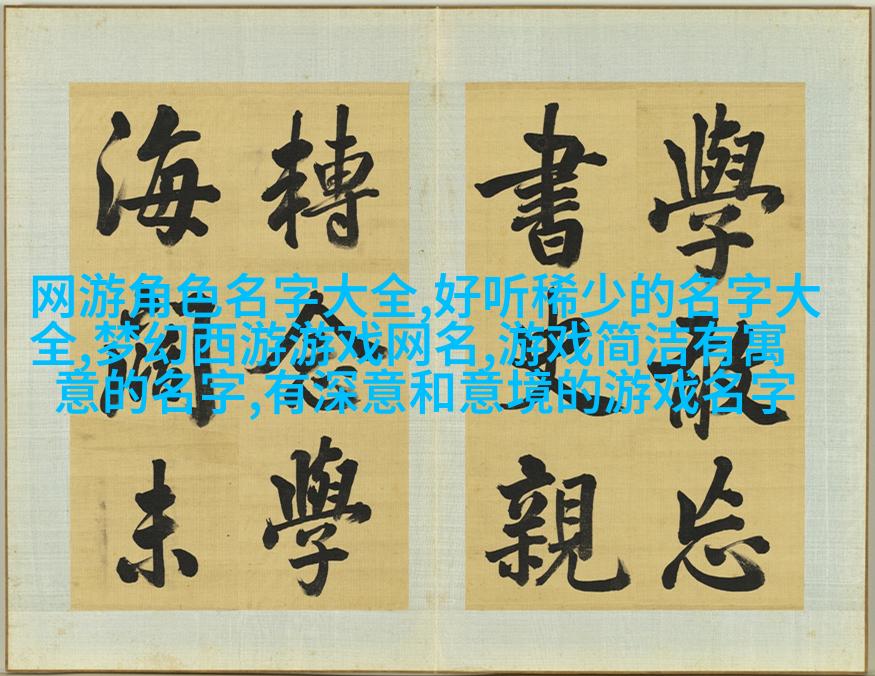 网游角色名字大全,好听稀少的名字大
全,梦幻西游游戏网名,游戏简洁有寓
意的名字,有深意和意境的游戏名字
學敢忘
書史親
轉念學
海闊未